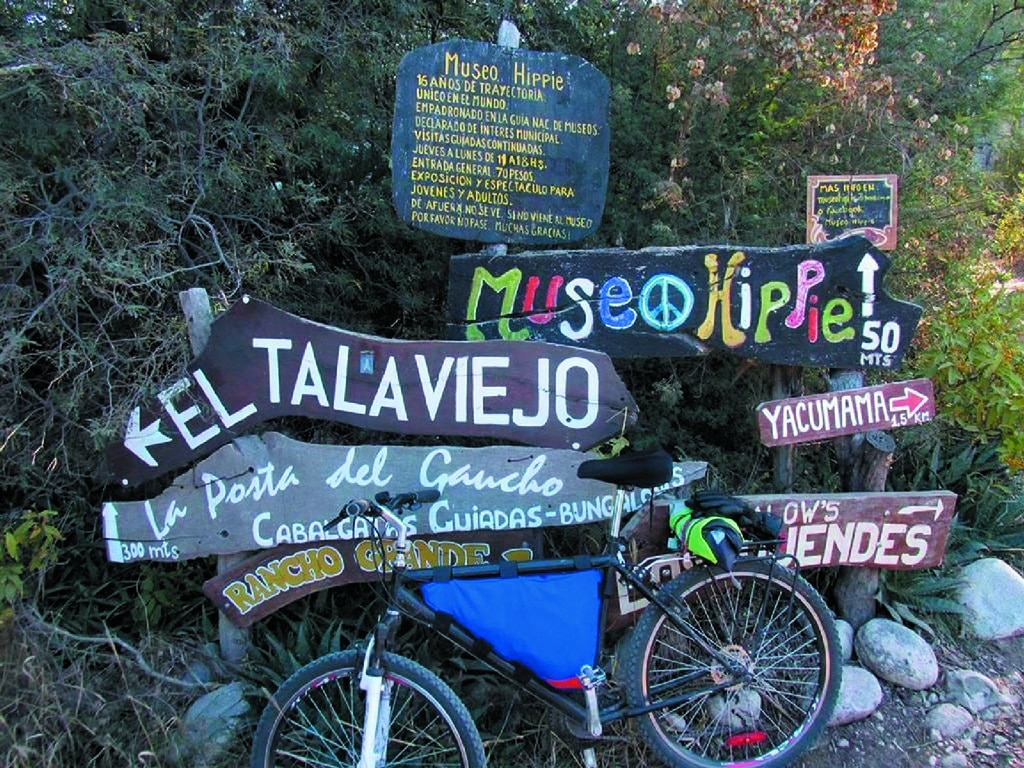 Museo Hippie
16 AÑOS DE TRAYECTORIA.
UNICO EN EL MUNDO.
EMPADRONADO EN LA GUIA NAC. DE MUSEOS.
DECLARADO DE INTERES MUNICIPAL.
VISITAS GUIADAS CONTINUADAS.
JUEVES A LUNES DE 11 A 18 HS.
ENTRADA GENERAL 70 PESOS.
EXPOSICION Y ESPECTACULO PARA
JOVENES Y ADULTOS.
DE AFUERA NO SE VE. SI NO VIENE AL MUSEO
POR FAVOR NO PASE. MUCHAS GRACIAS!
MAS INFO EN:
o Facebook
Museo Hippie
MUSEO HIPPIE
50
MTS
EL TALAVIEJO
YACUMAMA 1.5 KM
La Posta del Gaucho
300 mts
CABALGATAS GUIADAS - BUNGALOWS
RANCHO GRANDE
LOW'S
ENDES